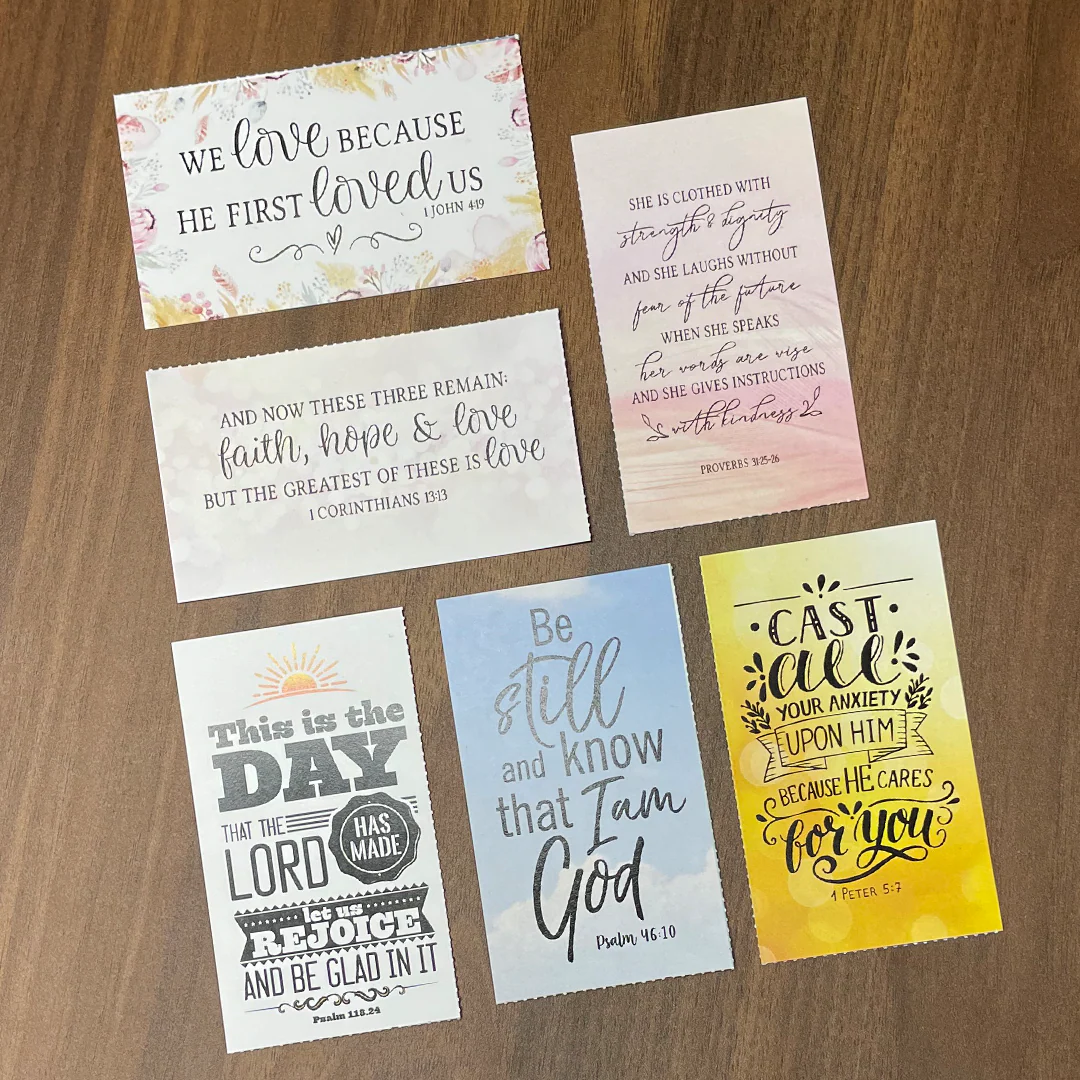 WE love BECAUSE
HE FIRST loved US
1 JOHN 4:19
SHE IS CLOTHED WITH
strength & dignity
AND SHE LAUGHS WITHOUT
fear of the future
WHEN SHE SPEAKS
her words are wise
AND SHE GIVES INSTRUCTIONS
with kindness
PROVERBS 31:25-26
AND NOW THESE THREE REMAIN:
faith, hope & love
BUT THE GREATEST OF THESE IS love
1 CORINTHIANS 13:13
This is the
DAY
THAT THE
LORD
HAS
MADE
let us
REJOICE
AND BE GLAD IN IT
Psalm 118.24
Be
still
and know
that I am
God
Psalm 46:10
CAST
all
YOUR ANXIETY
UPON HIM
BECAUSE HE CARES
for you
1 PETER 5:7